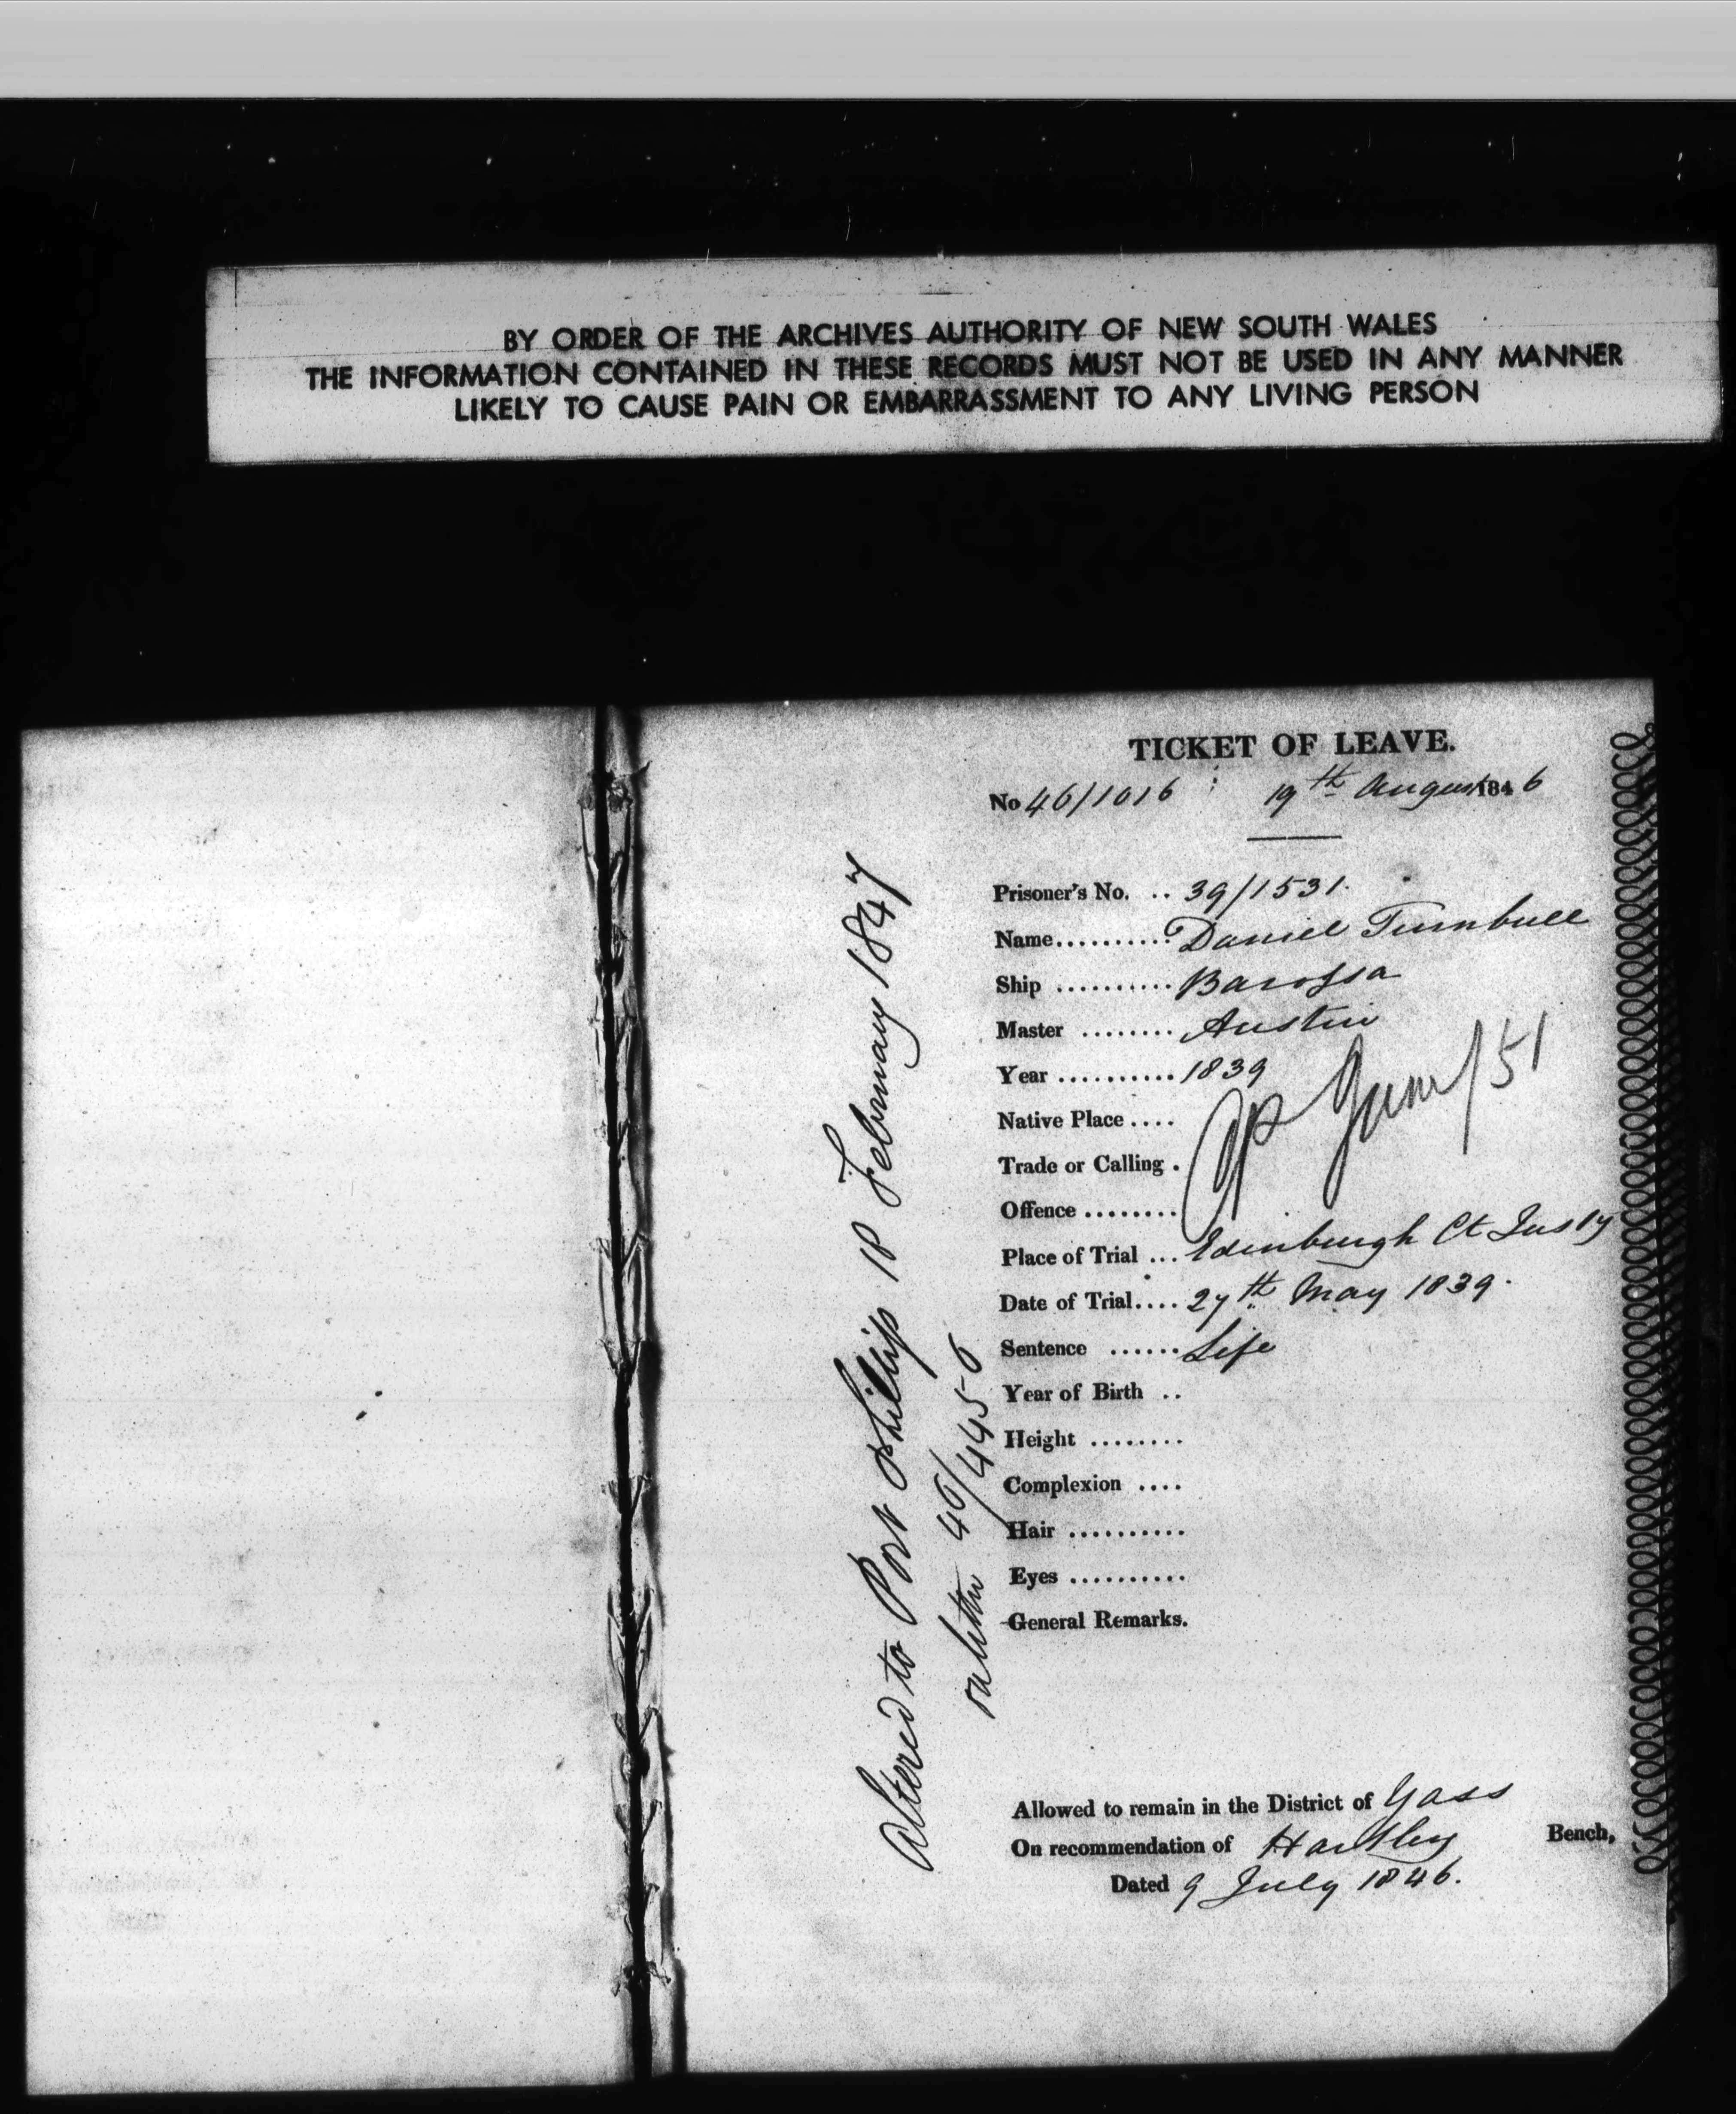 BY ORDER OF THE ARCHIVES AUTHORITY OF NEW SOUTH WALES
THE INFORMATION CONTAINED IN THESE RECORDS MUST NOT BE USED IN ANY MANNER
LIKELY TO CAUSE PAIN OR EMBARRASSMENT TO ANY LIVING PERSON
TICKET OF LEAVE.
No 46/1016 19th August 1846
Prisoner's No. .. 39/1531.
Name.......... Daniel Turnbull
Ship .......... Barossa
Master ........ Austin
Year .......... 1839
Native Place ....
Trade or Calling .
Offence ........
CP June/51
Place of Trial ... Edinburgh Ct Justy
Date of Trial.... 27th May 1839.
Sentence ...... Life
Year of Birth ..
Height ........
Complexion ....
Hair ..........
Eyes ..........
General Remarks.
Allowed to remain in the District of Yass
On recommendation of Hartley Bench,
Dated 9 July 1846.
Altered to Port Phillip 18 February 1847
46/4456